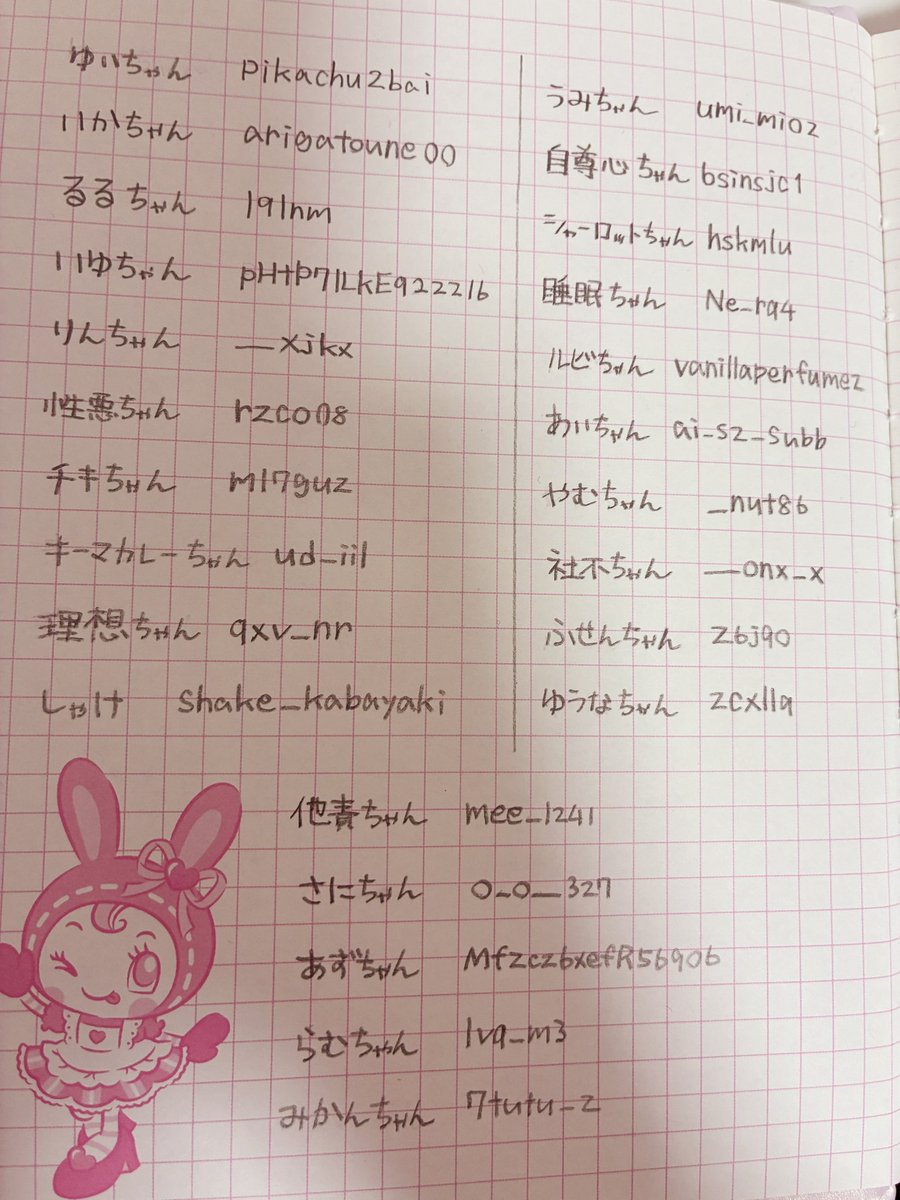 ゆいちゃん pikachu2bai
いかちゃん arigatoune00
るるちゃん l91nm
いゆちゃん pHtP71LkE922216
りんちゃん __xjkx
性悪ちゃん rzco08
チキちゃん ml7guz
キーマカレーちゃん ud_iil
理想ちゃん qxv_nr
しゃけ shake_kabayaki
うみちゃん umi_mioz
自尊心ちゃん bsinsjc1
シャーロットちゃん hskmlu
睡眠ちゃん Ne_rq4
ルビちゃん vanillaperfumez
あいちゃん ai_sz_subb
やむちゃん _nut86
社不ちゃん __onx_x
ふせんちゃん z6jq0
ゆうなちゃん zcxllq
他責ちゃん mee_1241
さにちゃん 0_0__327
あずちゃん Mfzcz6xefR56906
らむちゃん lvq_m3
みかんちゃん 7tutu_z